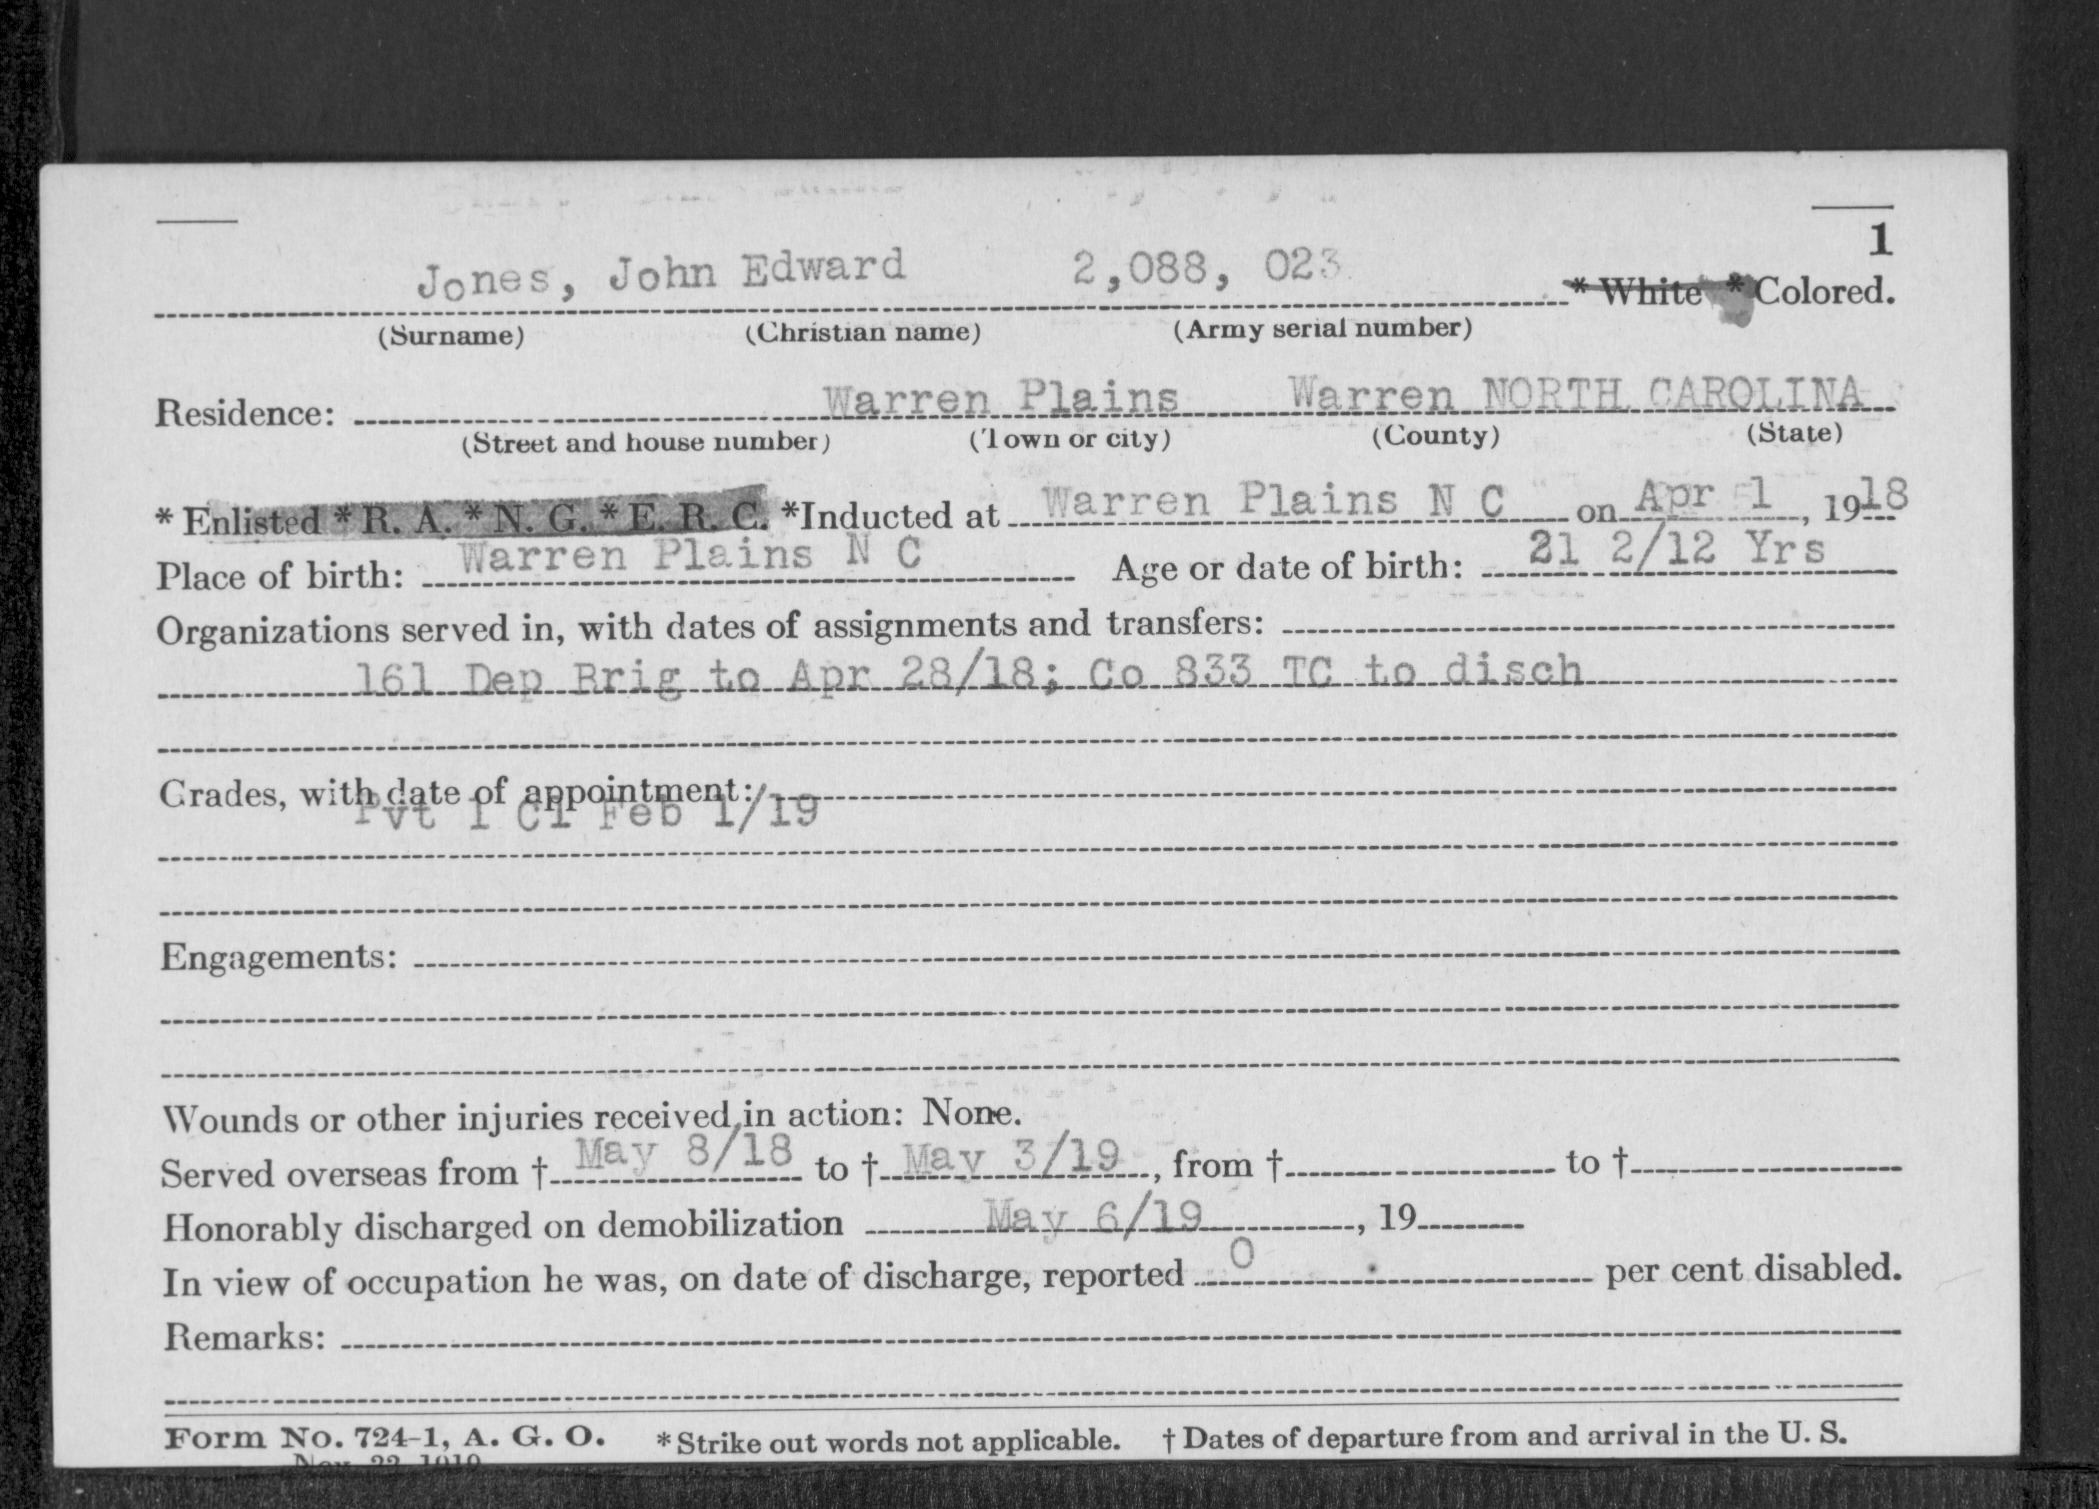 1
Jones, John Edward 2,088, 023 * White * Colored.
(Surname) (Christian name) (Army serial number)
Residence: Warren Plains Warren NORTH CAROLINA
(Street and house number) (Town or city) (County) (State)
* Enlisted * R. A. * N. G. * E. R. C. *Inducted at Warren Plains N C on Apr 1, 1918
Place of birth: Warren Plains N C Age or date of birth: 21 2/12 Yrs
Organizations served in, with dates of assignments and transfers:
161 Dep Brig to Apr 28/18; Co 833 TC to disch
Grades, with date of appointment:
Pvt 1 Cl Feb 1/19
Engagements:
Wounds or other injuries received in action: None.
Served overseas from † May 8/18 to † May 3/19, from † to †
Honorably discharged on demobilization May 6/19, 19
In view of occupation he was, on date of discharge, reported 0 per cent disabled.
Remarks:
Form No. 724-1, A. G. O. * Strike out words not applicable. † Dates of departure from and arrival in the U. S.
Nov. 22, 1919